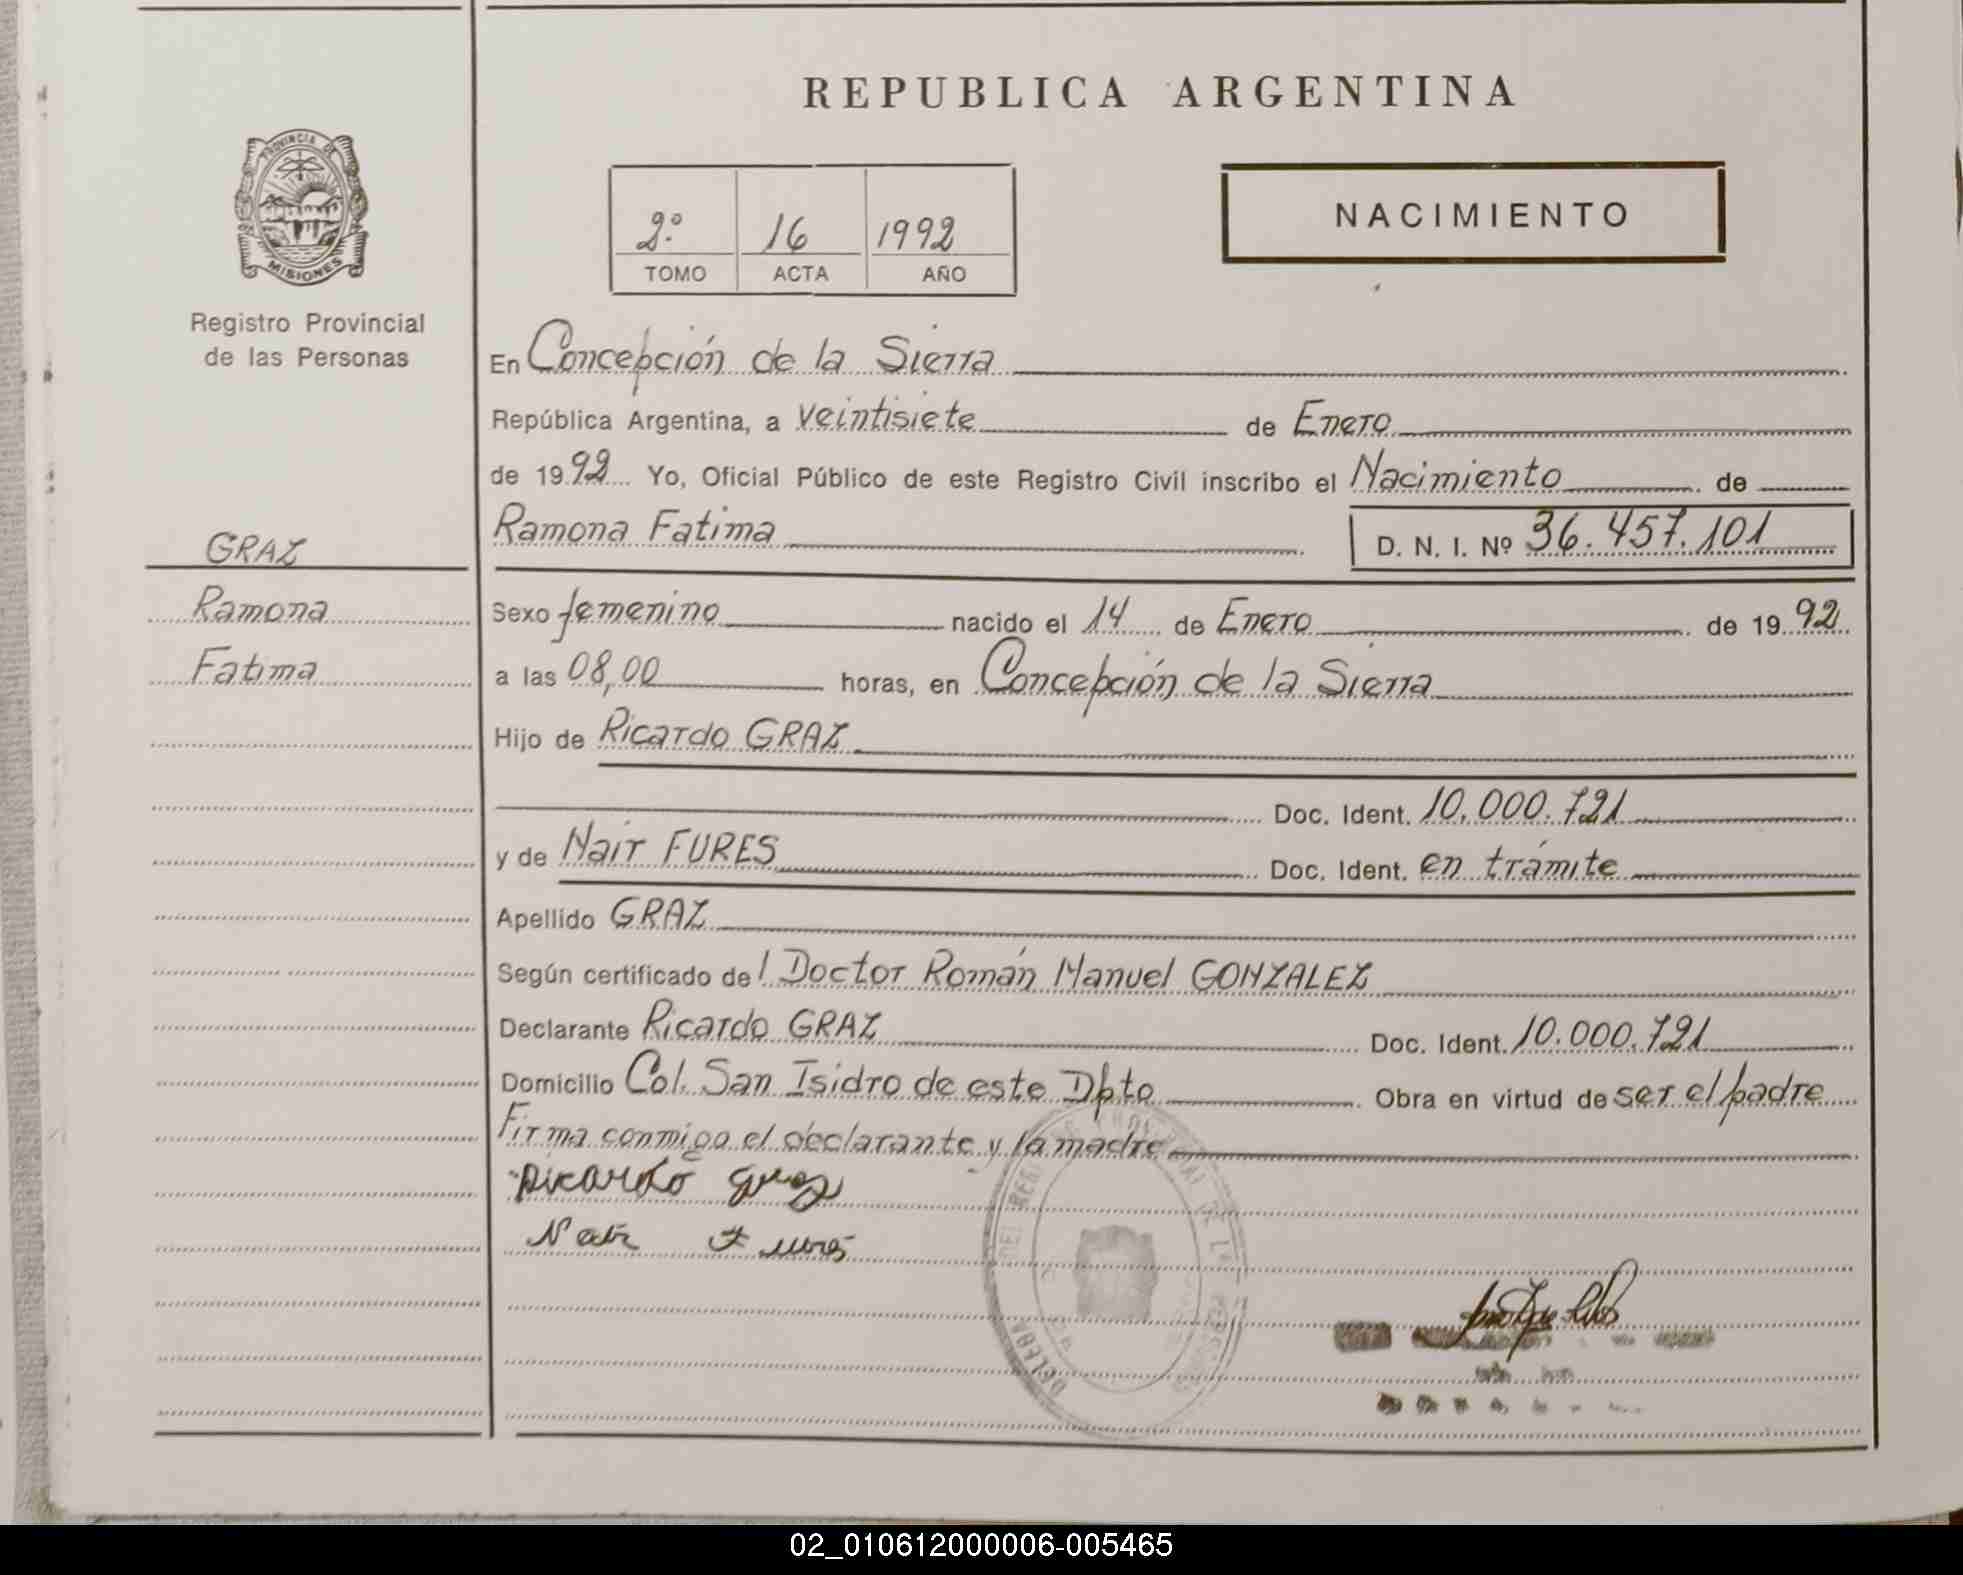 REPUBLICA ARGENTINA
PROVINCIA DE
MISIONES
Registro Provincial
de las Personas
2º 16 1992
TOMO ACTA AÑO
NACIMIENTO
En Concepción de la Sierra
República Argentina, a veintisiete de Enero
de 1992 Yo, Oficial Público de este Registro Civil inscribo el Nacimiento de
Ramona Fatima D. N. I. Nº 36.457.101
GRAZ
Ramona
Fatima
Sexo femenino nacido el 14 de Enero de 1992
a las 08,00 horas, en Concepción de la Sierra
Hijo de Ricardo GRAZ
Doc. Ident. 10.000.721
y de Nair FURES Doc. Ident. en trámite
Apellido GRAZ
Según certificado del Doctor Román Manuel GONZALEZ
Declarante Ricardo GRAZ Doc. Ident. 10.000.721
Domicilio Col. San Isidro de este Dpto Obra en virtud de ser el padre
Firma conmigo el declarante y la madre
Ricardo Graz
Nair Fures
02_010612000006-005465